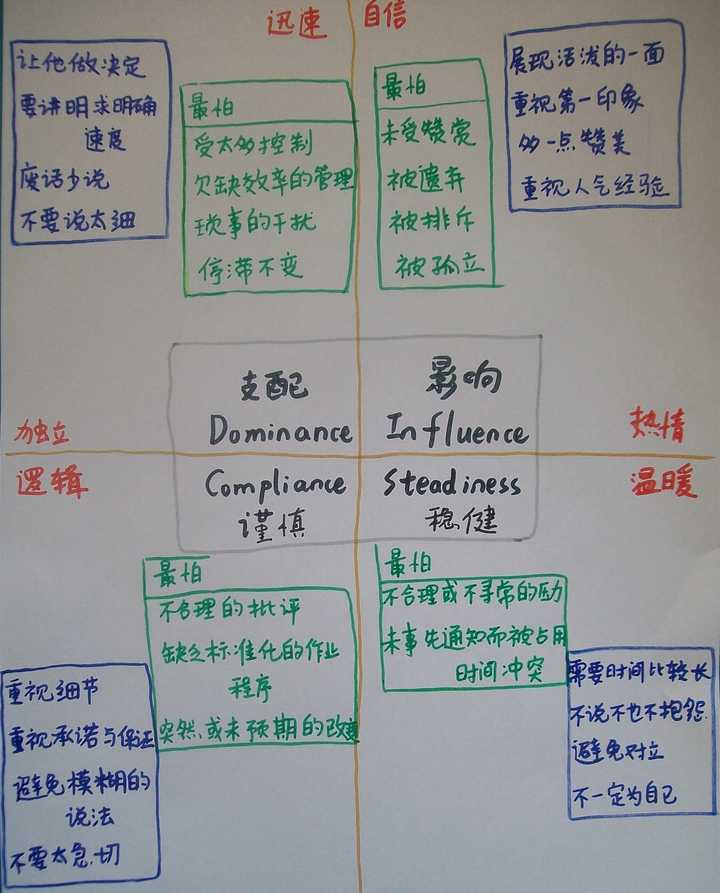 迅速
自信
让他做决定
要讲明求明确
速度
废话少说
不要说太细
最怕
受太多控制
欠缺效率的管理
琐事的干扰
停滞不变
最怕
未受赞赏
被遗弃
被排斥
被孤立
展现活泼的一面
重视第一印象
多一点赞美
重视人气经验
支配
Dominance
影响
Influence
独立
热情
逻辑
温暖
Compliance
谨慎
Steadiness
稳健
最怕
不合理的批评
缺乏标准化的作业
程序
突然、或未预期的改变
最怕
不合理或不寻常的压力
未事先通知而被占用
时间冲突
重视细节
重视承诺与保证
避免模糊的
说法
不要太急切
需要时间比较长
不说不也不抱怨
避免对立
不一定为自己